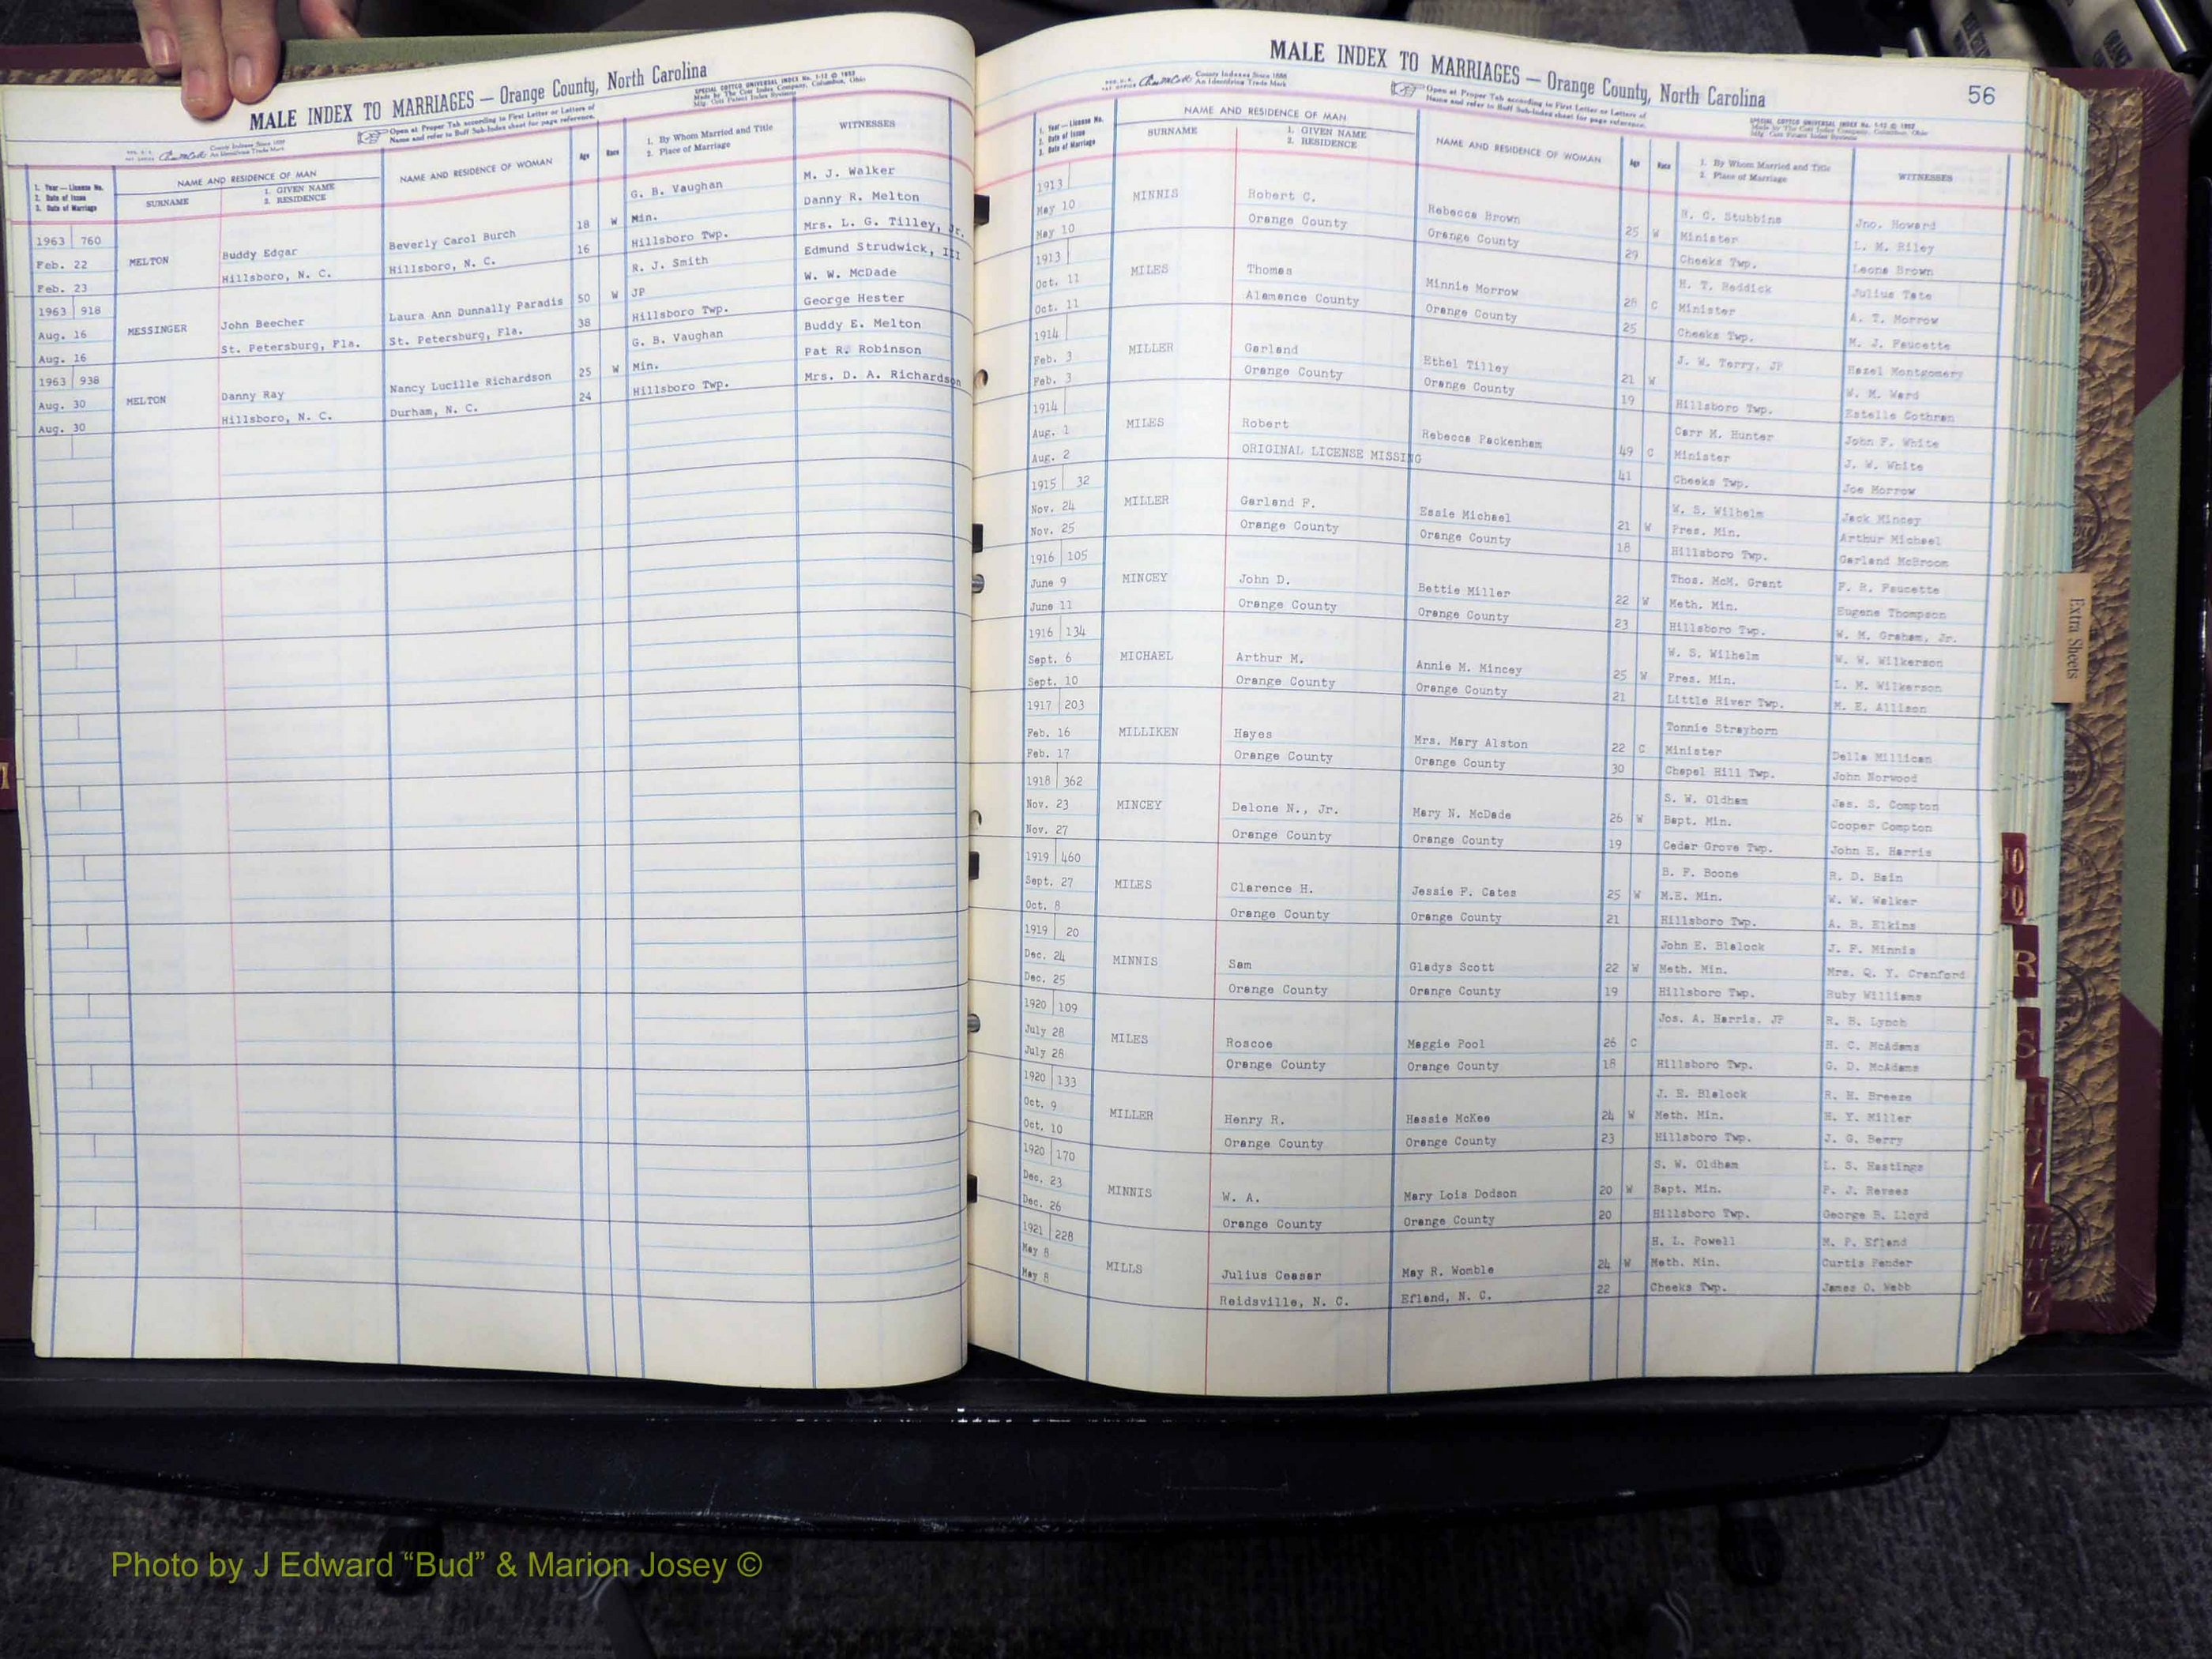 MALE INDEX TO MARRIAGES — Orange County, North Carolina
Open at Proper Tab according to First Letter or Letters of
Name and refer to Buff Sub-Index sheet for page reference.
SPECIAL COTTCO UNIVERSAL INDEX No. 1-12 © 1952
Made by The Cott Index Company, Columbus, Ohio
County Indexes Since 1888
An Identifying Trade Mark
1. Year—License No.
2. Date of Issue
3. Date of Marriage
NAME AND RESIDENCE OF MAN
SURNAME
1. GIVEN NAME
2. RESIDENCE
NAME AND RESIDENCE OF WOMAN
Age
Race
1. By Whom Married and Title
2. Place of Marriage
WITNESSES
1963 760 G. B. Vaughan M. J. Walker
Feb. 22 MELTON Buddy Edgar Beverly Carol Burch 18 W Min. Danny R. Melton
Feb. 23 Hillsboro, N. C. Hillsboro, N. C. 16 Hillsboro Twp. Mrs. L. G. Tilley, Jr.
1963 918 R. J. Smith Edmund Strudwick, III
Aug. 16 MESSINGER John Beecher Laura Ann Dunnally Paradis 50 W JP W. W. McDade
Aug. 16 St. Petersburg, Fla. St. Petersburg, Fla. 38 Hillsboro Twp. George Hester
1963 938 G. B. Vaughan Buddy E. Melton
Aug. 30 MELTON Danny Ray Nancy Lucille Richardson 25 W Min. Pat R. Robinson
Aug. 30 Hillsboro, N. C. Durham, N. C. 24 Hillsboro Twp. Mrs. D. A. Richardson
MALE INDEX TO MARRIAGES — Orange County, North Carolina
56
County Indexes Since 1888
An Identifying Trade Mark
Open at Proper Tab according to First Letter or Letters of
Name and refer to Buff Sub-Index sheet for page reference.
SPECIAL COTTCO UNIVERSAL INDEX No. 1-12 © 1952
Made by The Cott Index Company, Columbus, Ohio
1. Year—License No.
2. Date of Issue
3. Date of Marriage
NAME AND RESIDENCE OF MAN
SURNAME
1. GIVEN NAME
2. RESIDENCE
NAME AND RESIDENCE OF WOMAN
Age
Race
1. By Whom Married and Title
2. Place of Marriage
WITNESSES
1913 H. C. Stubbins Jno. Howard
May 10 MINNIS Robert C. Rebecca Brown 25 W Minister L. M. Riley
May 10 Orange County Orange County 29 Cheeks Twp. Leone Brown
1913 H. T. Reddick Julius Tate
Oct. 11 MILES Thomas Minnie Morrow 28 C Minister A. T. Morrow
Oct. 11 Alamance County Orange County 25 Cheeks Twp. M. J. Faucette
1914 J. W. Terry, JP Hazel Montgomery
Feb. 3 MILLER Garland Ethel Tilley 21 W W. M. Ward
Feb. 3 Orange County Orange County 19 Hillsboro Twp. Estelle Cothran
1914 Carr M. Hunter John F. White
Aug. 1 MILES Robert Rebecca Packenham 49 C Minister J. W. White
Aug. 2 ORIGINAL LICENSE MISSING 41 Cheeks Twp. Joe Morrow
1915 32 W. S. Wilhelm Jack Mincey
Nov. 24 MILLER Garland F. Essie Michael 21 W Pres. Min. Arthur Michael
Nov. 25 Orange County Orange County 18 Hillsboro Twp. Garland McBroom
1916 105 Thos. McM. Grant F. R. Faucette
June 9 MINCEY John D. Bettie Miller 22 W Meth. Min. Eugene Thompson
June 11 Orange County Orange County 23 Hillsboro Twp. W. M. Graham, Jr.
1916 134 W. S. Wilhelm W. W. Wilkerson
Sept. 6 MICHAEL Arthur M. Annie M. Mincey 25 W Pres. Min. L. M. Wilkerson
Sept. 10 Orange County Orange County 21 Little River Twp. M. E. Allison
1917 203 Tonnie Strayhorn
Feb. 16 MILLIKEN Hayes Mrs. Mary Alston 22 C Minister Della Millican
Feb. 17 Orange County Orange County 30 Chapel Hill Twp. John Norwood
1918 362 S. W. Oldham Jas. S. Compton
Nov. 23 MINCEY Delone N., Jr. Mary N. McDade 26 W Bapt. Min. Cooper Compton
Nov. 27 Orange County Orange County 19 Cedar Grove Twp. John E. Harris
1919 460 B. F. Boone R. D. Bain
Sept. 27 MILES Clarence H. Jessie F. Cates 25 W M.E. Min. W. W. Walker
Oct. 8 Orange County Orange County 21 Hillsboro Twp. A. B. Elkins
1919 20 John E. Blalock J. F. Minnis
Dec. 24 MINNIS Sam Gladys Scott 22 W Meth. Min. Mrs. Q. Y. Cranford
Dec. 25 Orange County Orange County 19 Hillsboro Twp. Ruby Williams
1920 109 Jos. A. Harris, JP R. B. Lynch
July 28 MILES Roscoe Maggie Pool 26 C H. C. McAdams
July 28 Orange County Orange County 18 Hillsboro Twp. G. D. McAdams
1920 133 J. E. Blalock R. H. Breeze
Oct. 9 MILLER Henry R. Hassie McKee 24 W Meth. Min. H. Y. Miller
Oct. 10 Orange County Orange County 23 Hillsboro Twp. J. G. Berry
1920 170 S. W. Oldham L. S. Hastings
Dec. 23 MINNIS W. A. Mary Lois Dodson 20 W Bapt. Min. P. J. Reves
Dec. 26 Orange County Orange County 20 Hillsboro Twp. George B. Lloyd
1921 228 H. L. Powell M. P. Efland
May 8 MILLS Julius Ceaser May R. Womble 24 W Meth. Min. Curtis Pender
May 8 Reidsville, N. C. Efland, N. C. 22 Cheeks Twp. James O. Webb
Extra Sheets
R
S
Photo by J Edward “Bud” & Marion Josey ©